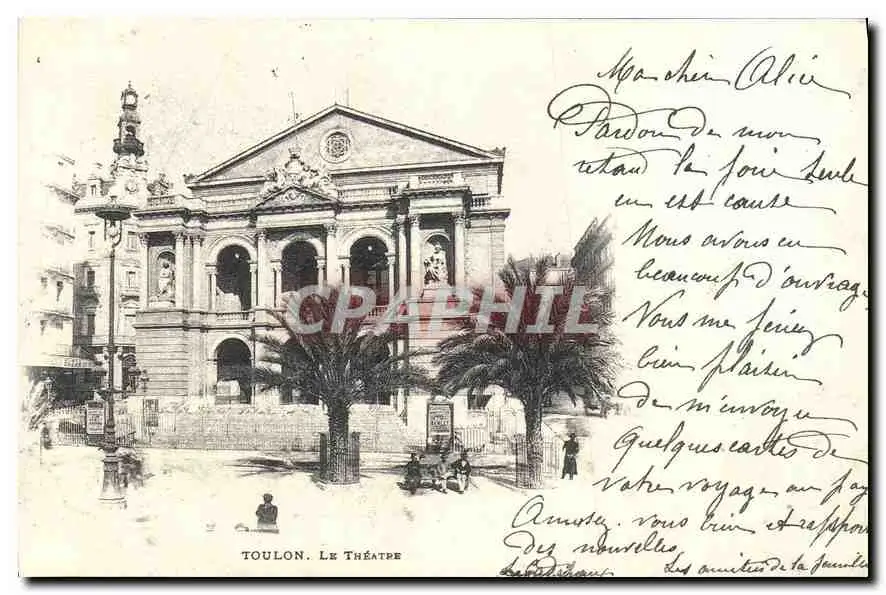 Ma chère Alice
Pardon de mon
retard la foire seule
en est cause
Nous avons eu
beaucoup d'ouvrage
Vous me feriez
bien plaisir
de m'envoyer
Quelques cartes de
votre voyage au pay
Amusez vous bien et rapport
des nouvelles
Les amitiés de la famille
CPARAMA.NET
TOULON. LE THÉATRE